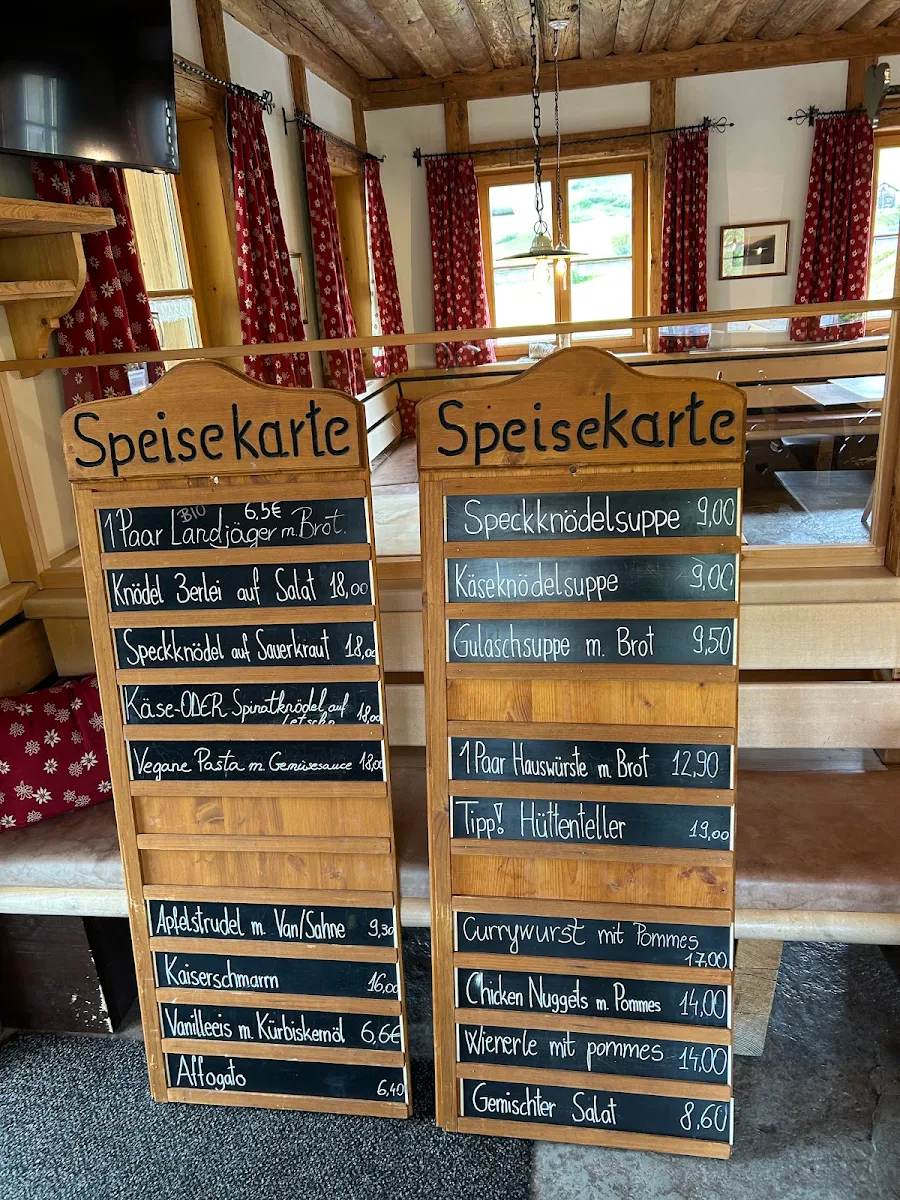 Speisekarte
BIO 6,5€
1 Paar Landjäger m. Brot.
Knödel 3erlei auf Salat 18,00
Speckknödel auf Sauerkraut 18,00
Käse-ODER Spinatknödel auf
18,00
Vegane Pasta m. Gemüsesauce 18,00
Apfelstrudel m. Van/Sahne 9,30
Kaiserschmarrn 16,00
Vanilleeis m. Kürbiskernöl 6,6€
Affogato 6,40
Speisekarte
Speckknödelsuppe 9,00
Käseknödelsuppe 9,00
Gulaschsuppe m. Brot 9,50
1 Paar Hauswürste m. Brot 12,90
Tipp! Hüttenteller 19,00
Currywurst mit Pommes
17,00
Chicken Nuggets m. Pommes 14,00
Wienerle mit pommes 14,00
Gemischter Salat 8,60